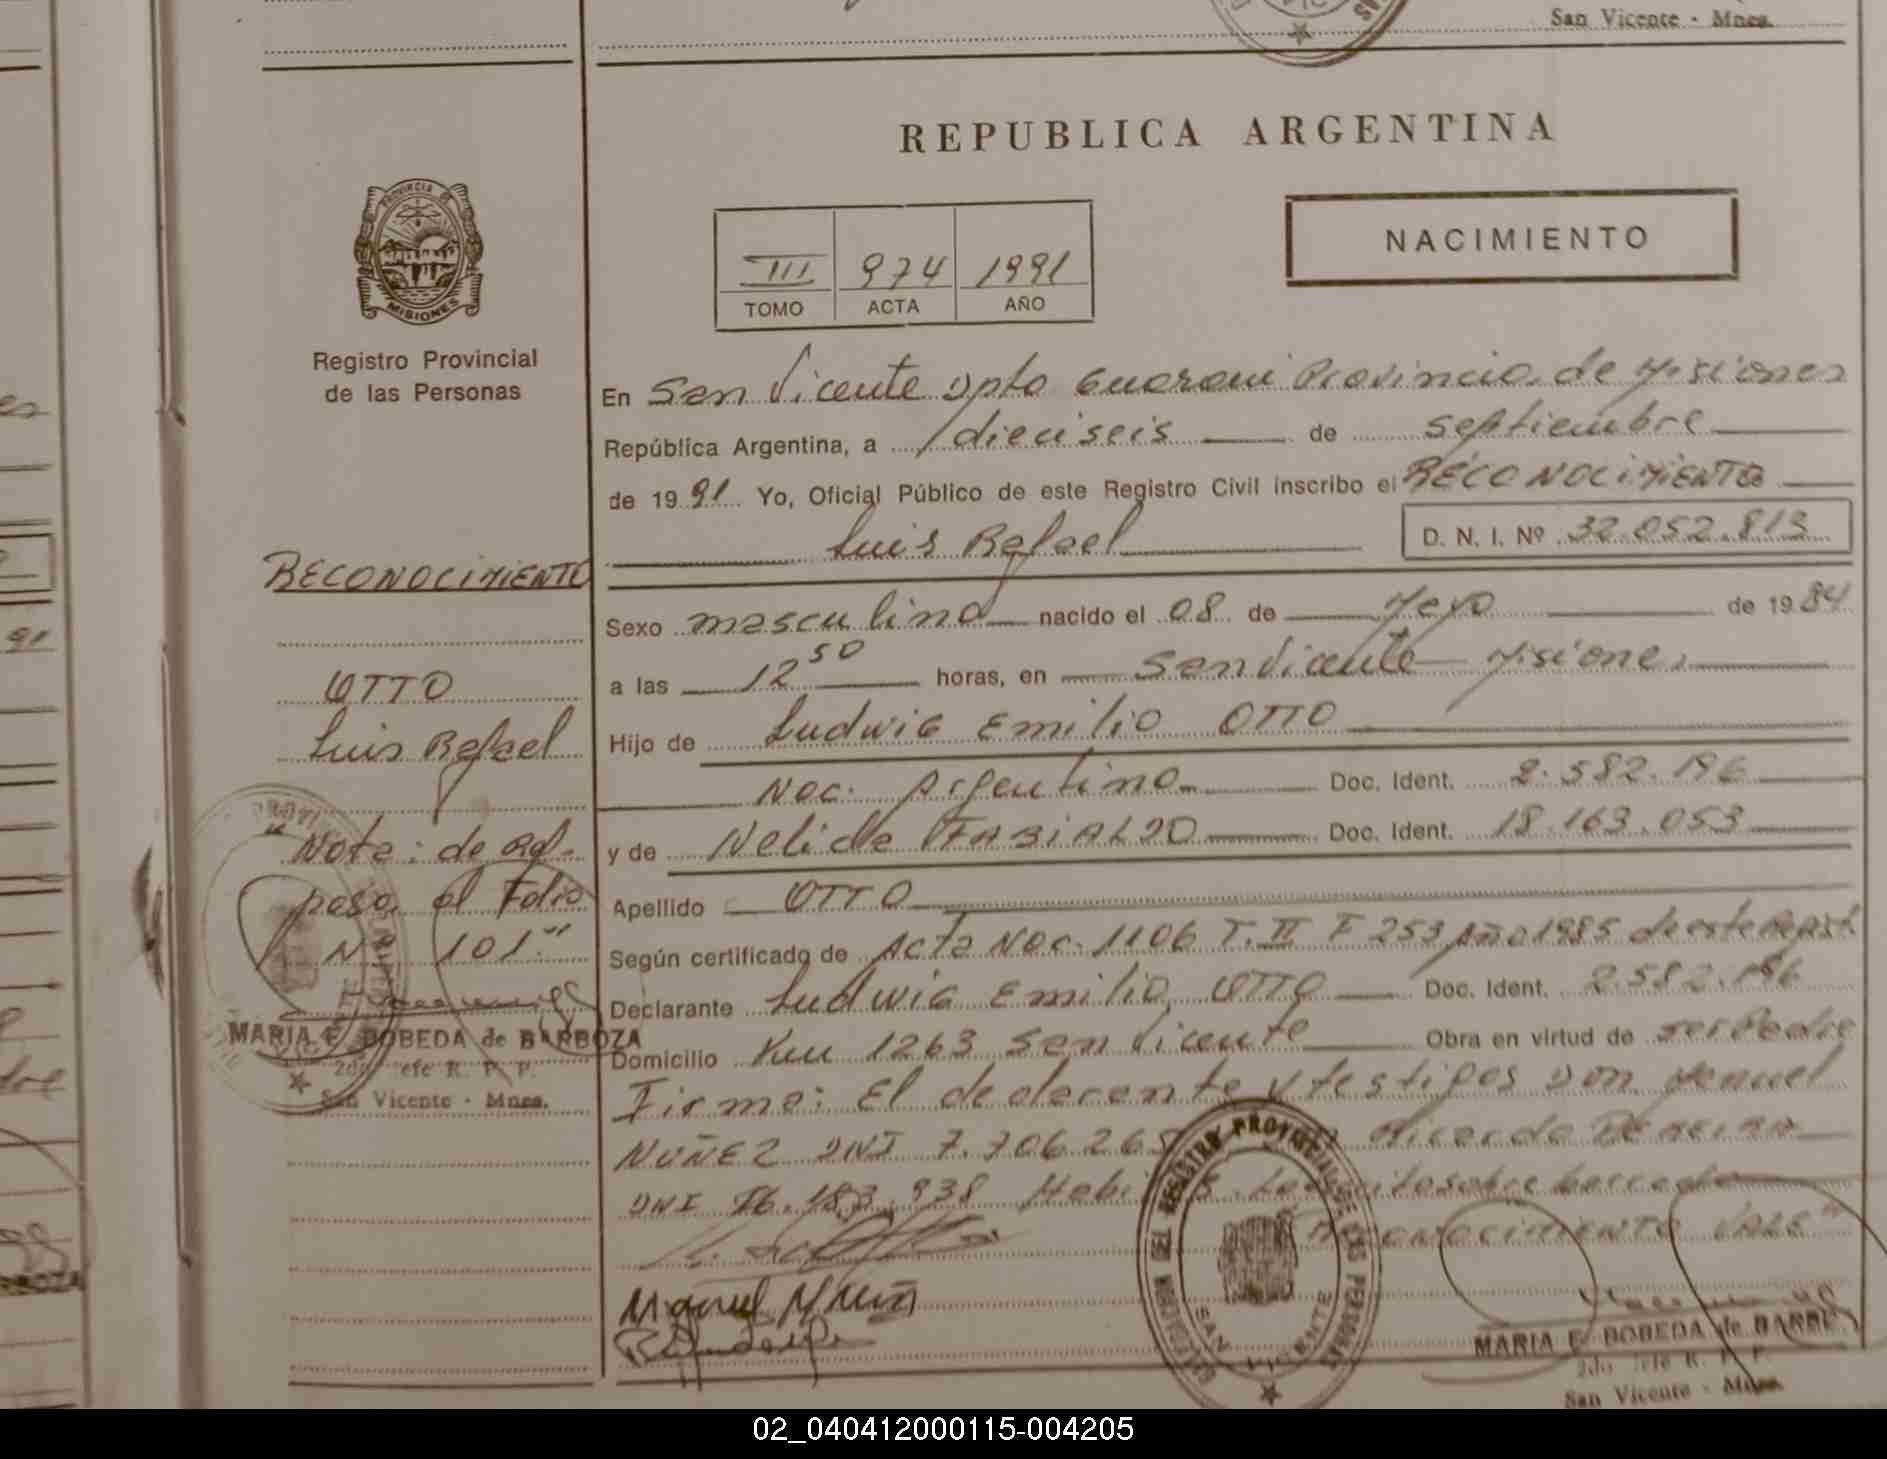 San Vicente - Mnes.
REPUBLICA ARGENTINA
NACIMIENTO
III 974 1991
TOMO ACTA AÑO
PROVINCIA
MISIONES
Registro Provincial
de las Personas
En San Vicente Dpto Guarani Provincia de Misiones
República Argentina, a dieciseis de septiembre
de 1991 Yo, Oficial Público de este Registro Civil inscribo el RECONOCIMIENTO
Luis Rafael D. N. I. Nº 32.052.813
RECONOCIMIENTO
Sexo masculino nacido el 08 de Mayo de 1984
a las 12 50 horas, en San Vicente Misiones
OTTO
Luis Rafael
Hijo de Ludwig Emilio OTTO
Nac. Argentina Doc. Ident. 2.582.196
y de Nelida Doc. Ident. 18.163.053
Nota: de Ref.
pasa al Folio
Nº 101"
Apellido OTTO
Según certificado de Acta Nac. 1106 T. II F 253 Año 1985 de este
Declarante Ludwig Emilio OTTO Doc. Ident. 2.582.196
MARIA E. BOBEDA de BARBOZA
2do Jefe R. P. P.
San Vicente - Mnes.
Domicilio Km 1263 San Vicente Obra en virtud de ser Padre
Firma: El declarante y testigos Don Manuel
NUÑEZ DNI 7.706.265 Ricardo
DNI 16.183.938 sobre
RECONOCIMIENTO VALE"
REGISTRO PROVINCIAL DE LAS PERSONAS
SAN VICENTE
MARIA E. BOBEDA de BARB
2do Jefe R. P. P.
San Vicente - Mnes.
02_040412000115-004205